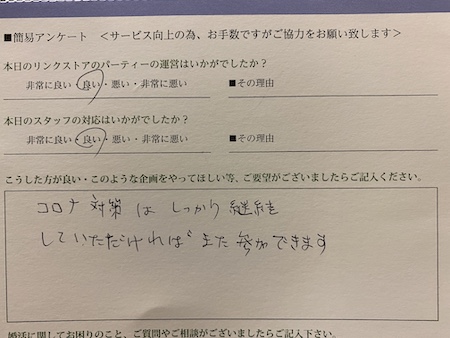 ■簡易アンケート <サービス向上の為、お手数ですがご協力をお願い致します>
本日のリンクストアのパーティーの運営はいかがでしたか?
非常に良い・良い・悪い・非常に悪い ■その理由
本日のスタッフの対応はいかがでしたか?
非常に良い・良い・悪い・非常に悪い ■その理由
こうした方が良い・このような企画をやってほしい等、ご要望がございましたらご記入ください。
コロナ対策はしっかり継続
していただければまた参加できます
婚活に関してお困りのこと、ご質問やご相談がございましたらご記入下さい。